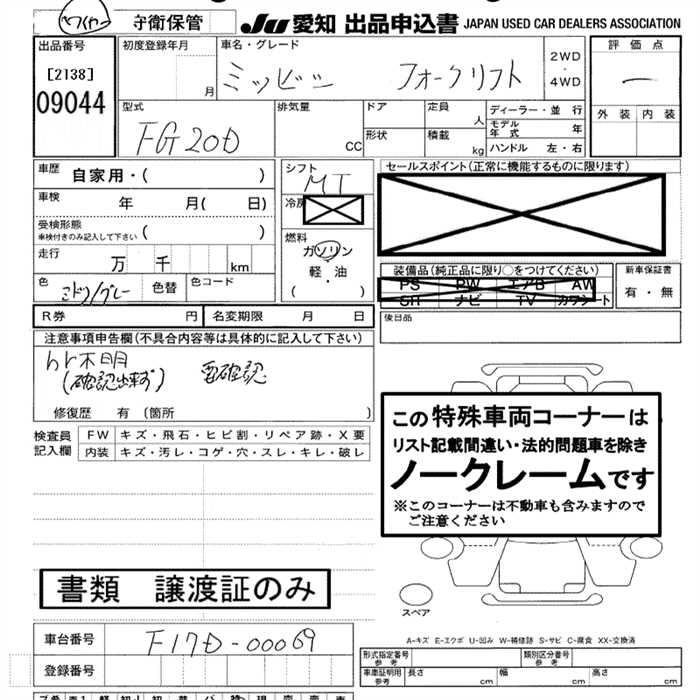 守衛保管
JU 愛知 出品申込書 JAPAN USED CAR DEALERS ASSOCIATION
出品番号 初度登録年月 車名・グレード 評価点
[2138] 月 ミツビシ フォークリフト 2WD・4WD ー
09044
型式 排気量 ドア 定員 ディーラー・並行 外装 内装
FG20D CC 形状 人 積載 kg モデル年式 年
ハンドル 左・右
車歴 自家用・( ) シフト MT セールスポイント(正常に機能するものに限ります)
車検 年 月( 日) 冷房
受検形態 ※検付きのみ記入して下さい ( ) 燃料 ガソリン
走行 万 千 km 軽・油 装備品(純正品に限り○をつけてください) 新車保証書
色 ミドリ/グレー 色替 色コード ( ) PS PW エアB AW 有・無
SR ナビ TV カワシート
R券 円 名変期限 月 日 後日品
注意事項申告欄(不具合内容等は具体的に記入して下さい)
hr不明 要確認
(確認出来ず)
修復歴 有 (箇所 )
検査員記入欄 FW キズ・飛石・ヒビ割・リペア跡・X要
内装 キズ・汚レ・コゲ・穴・スレ・キレ・破レ
この特殊車両コーナーは
リスト記載間違い・法的問題車を除き
ノークレームです
※このコーナーは不動車も含みますので
ご注意ください
書類 譲渡証のみ
スペア
A-キズ E-エクボ U-凹み W-補修跡 S-サビ C-腐食 XX-交換済
車台番号 F17D-00069
登録番号
形式指定番号 参考 類別区分番号 参考
車庫証明用 参考 長さ cm 幅 cm 高さ cm